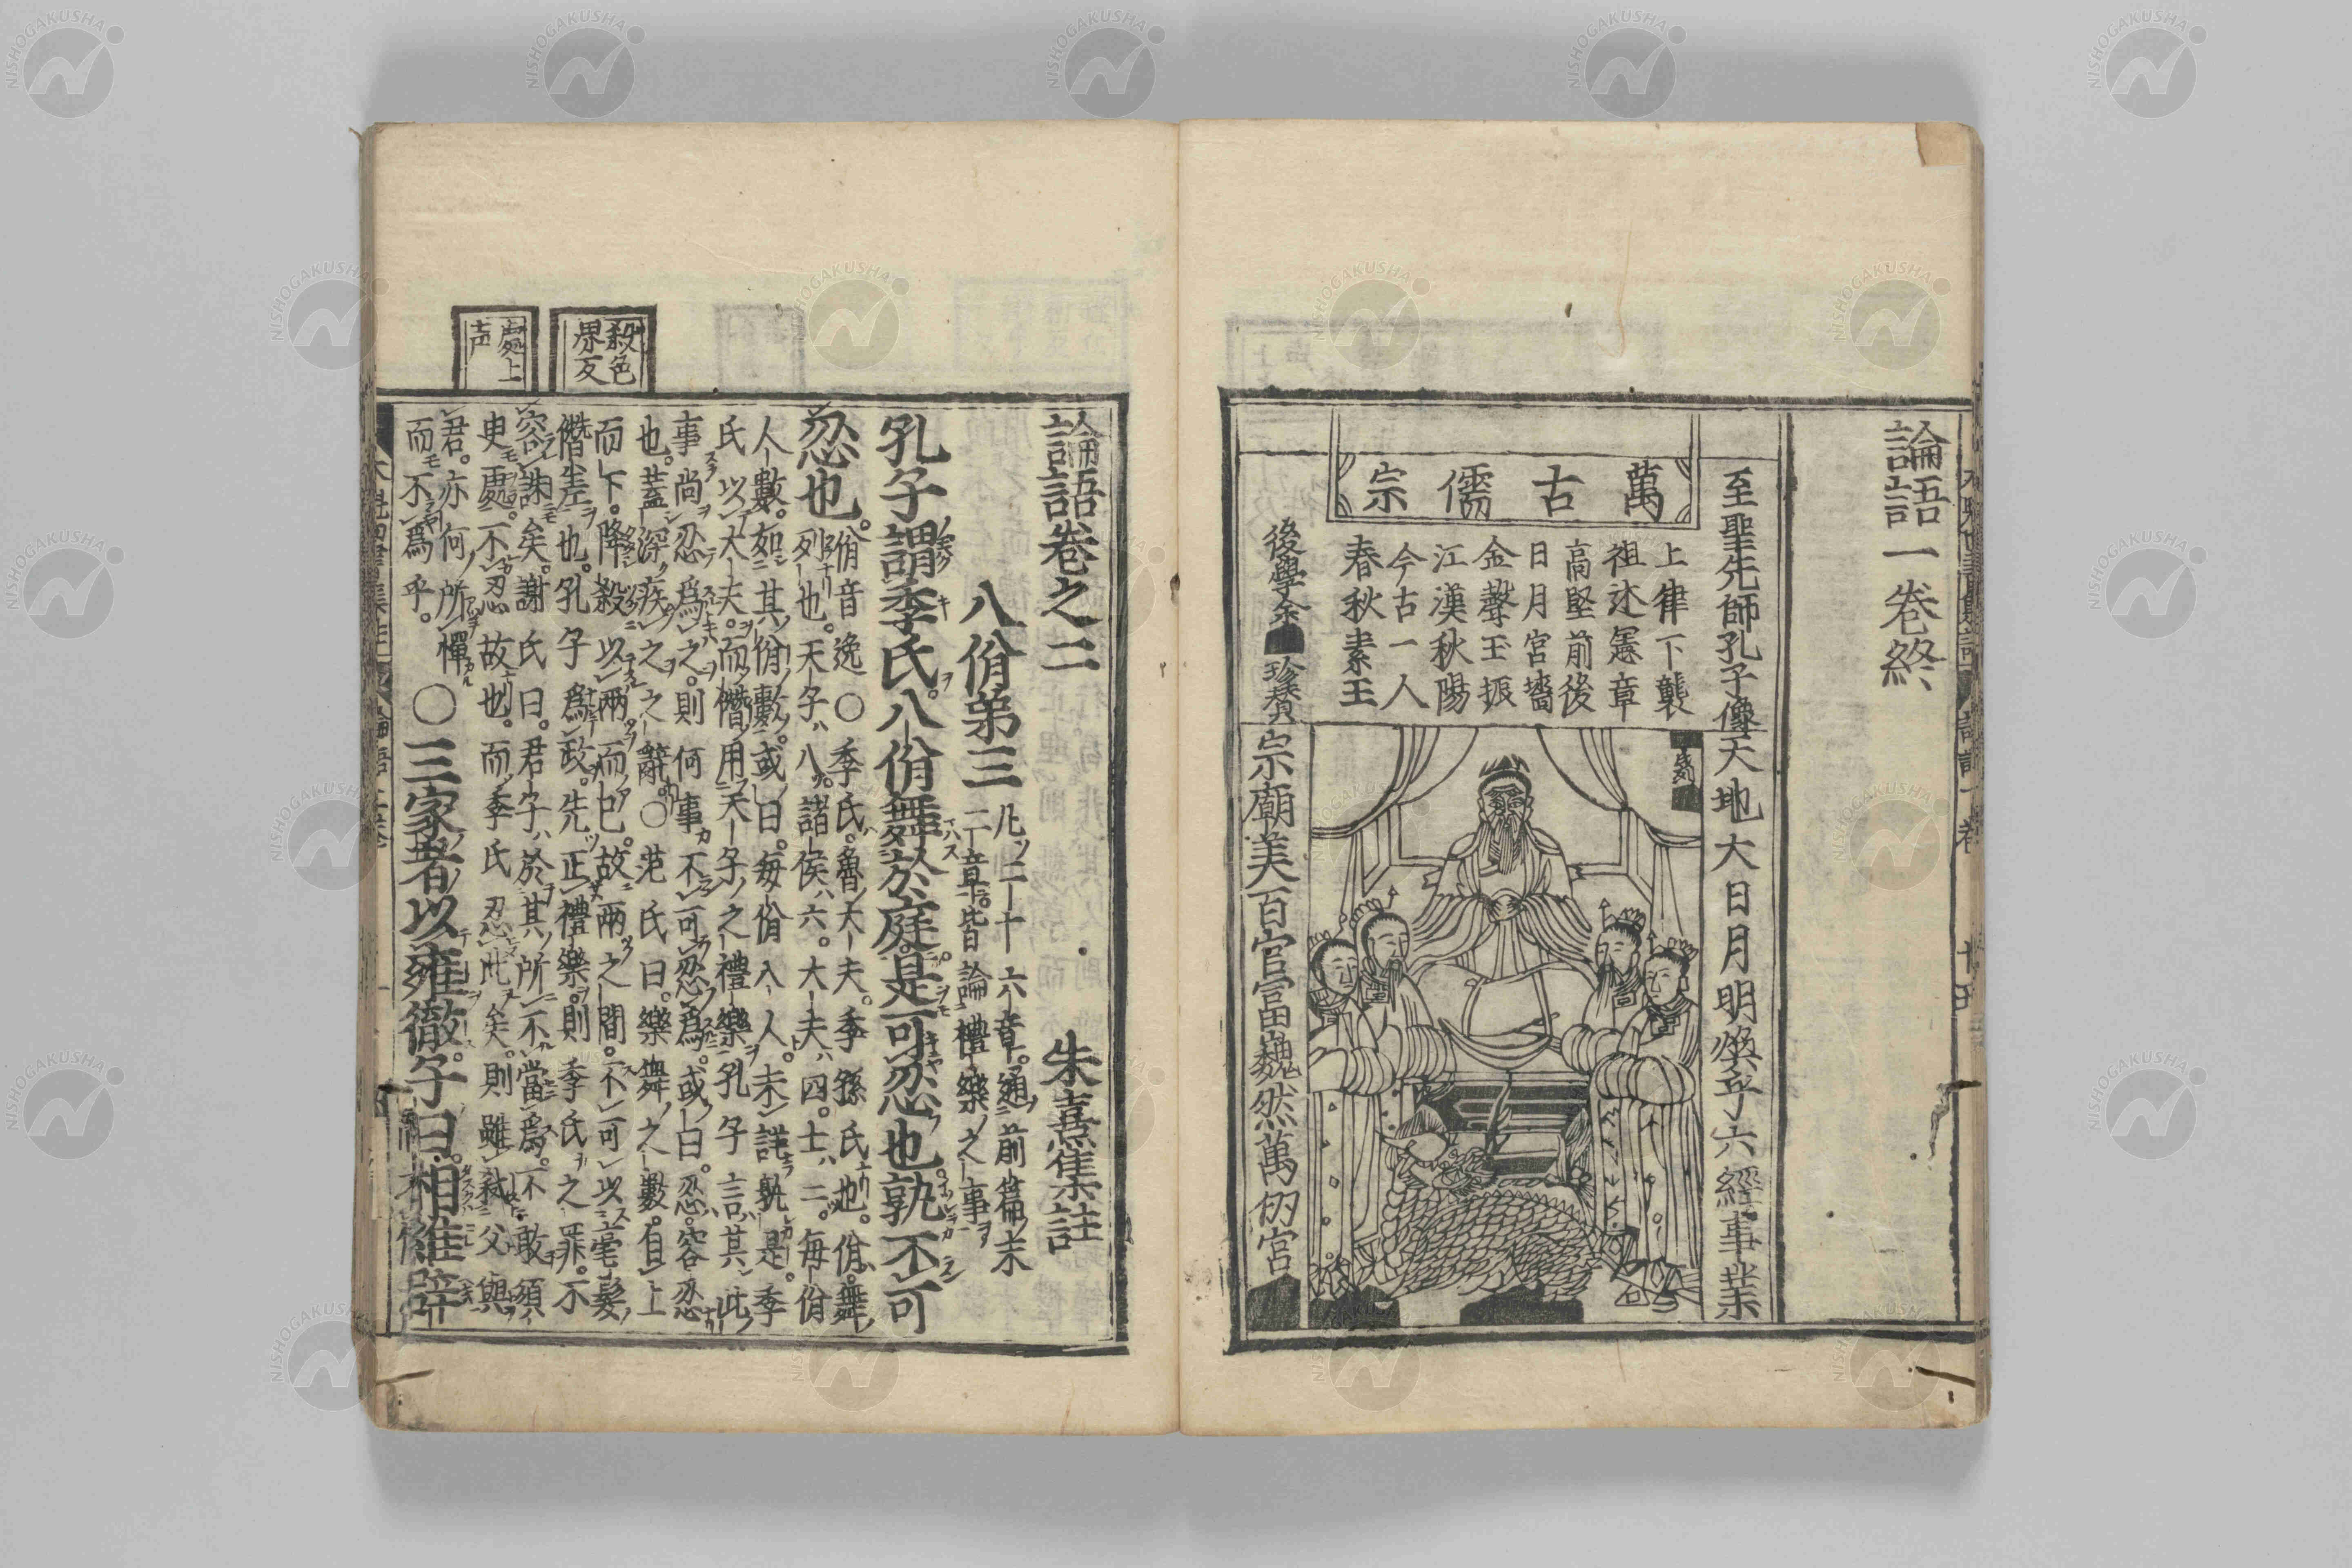 論語一卷終
至聖先師孔子像
天地大日月明煥乎六經事業
萬古儒宗
上律下襲
祖述憲章
高堅前後
日月宮墻
金聲玉振
江漢秋陽
今古一人
春秋素王
後學余
珍賛
宗廟美百官富巍然萬仞宮
論語卷之二
朱熹集註
八佾第三
凡二十六章。通前篇末
二章。皆論禮樂之事
孔子謂季氏。八佾舞於庭。是可忍也。孰不可
忍也。
佾音逸〇季氏。魯大夫。季孫氏也。佾。舞
列也。天子八。諸侯六。大夫四。士二。每佾
人數。如其佾數。或曰。每佾八人。未詳孰是。季
氏以大夫。而僭用天子之禮樂。孔子言其此
事尚忍爲之。則何事不可忍爲。或曰。忍。容忍
也。蓋深疾之之辭〇范氏曰。樂舞之數。自上
而下。降殺以兩而已。故兩之間。不可以毫髮
僭差也。孔子爲政。先正禮樂。則季氏之罪。不
容誅矣。謝氏曰。君子於其所不當爲。不敢須
臾處。不忍故也。而季氏忍此矣。則雖弑父與
君。亦何所憚
而不爲乎。
〇三家者以雍徹。子曰。相維辟
殺色
界反
處上
声
NISHOGAKUSHA